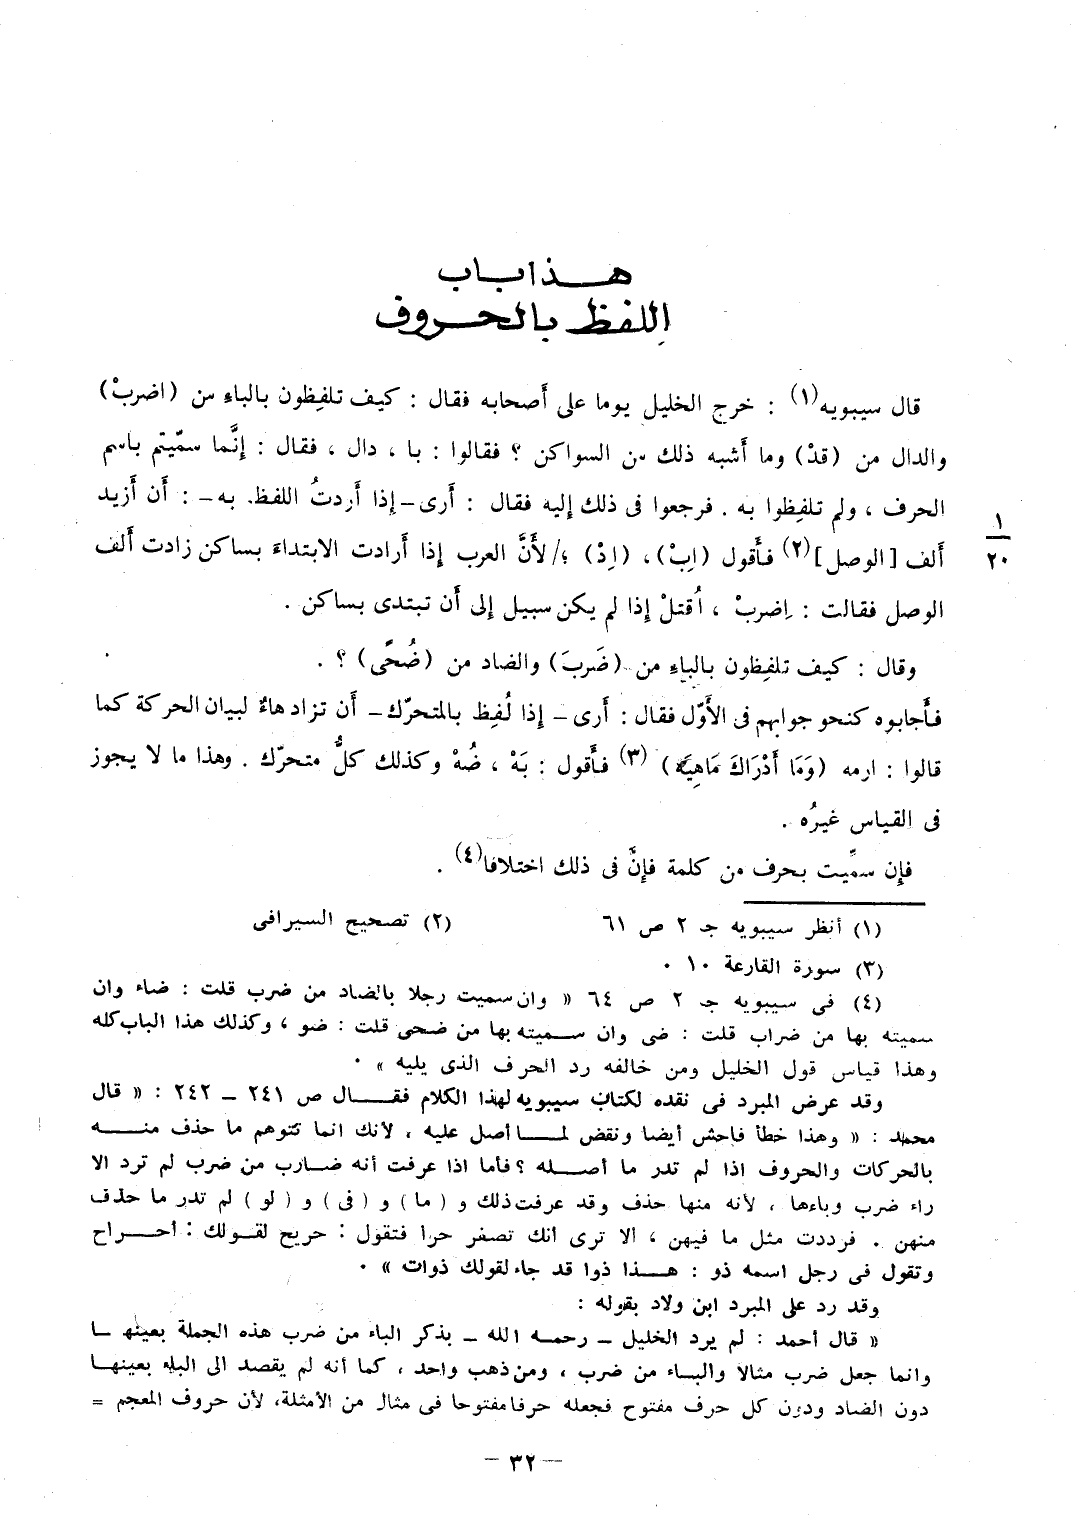 هذا باب
اللفظ بالحروف
قال سيبويه(١) : خرج الخليل يوما على أصحابه فقال : كيف تلفِظون بالباءِ من (اضربْ)
والدال من (قدْ) وما أشبه ذلك من السواكن ؟ فقالوا : با ، دال ، فقال : إنَّما سمّيتم باسم
الحرف ، ولم تلفِظوا به . فرجعوا فى ذلك إليه فقال : أَرى – إذا أردتُ اللفظ به – : أن أَزيد
١
٢٠
أَلف [الوصل](٢) فأَقول (اِبْ)، (اِدْ) ؛/ لأَنَّ العرب إذا أَرادت الابتداءَ بساكن زادت ألف
الوصل فقالت : اِضربْ ، اُقتلْ إذا لم يكن سبيل إلى أن تبتدى بساكن .
وقال : كيف تلفِظون بالباءِ من (ضَربَ) والضاد من (ضُحًى) ؟ .
فأَجابوه كنحو جوابهم فى الأَوّل فقال : أَرى – إذا لُفِظ بالمتحرّك – أن تزاد هاءٌ لبيان الحركة كما
قالوا : ارمه (وَمَا أَدْرَاكَ مَاهِيَهْ) (٣) فأَقول : بَهْ ، ضُهْ وكذلك كلُّ متحرّك . وهذا ما لا يجوز
فى القياس غيرُه .
فإِن سمَّيت بحرف من كلمة فإِنَّ فى ذلك اختلافا(٤) .
(١) أنظر سيبويه جـ ٢ ص ٦١ (٢) تصحيح السيرافى
(٣) سورة القارعة ١٠ .
(٤) فى سيبويه جـ ٢ ص ٦٤ « وان سميت رجلا بالضاد من ضرب قلت : ضاء وان
سميته بها من ضراب قلت : ضى وان سميته بها من ضحى قلت : ضو ، وكذلك هذا الباب كله
وهذا قياس قول الخليل ومن خالفه رد الحرف الذى يليه » .
وقد عرض المبرد فى نقده لكتاب سيبويه لهذا الكلام فقال ص ٢٤١ – ٢٤٢ : « قال
محمد : « وهذا خطأ فاحش أيضا ونقض لما أصل عليه ، لأنك انما تتوهم ما حذف منه
بالحركات والحروف اذا لم تدر ما أصله ؟ فأما اذا عرفت أنه ضارب من ضرب لم ترد الا
راء ضرب وباءها ، لأنه منها حذف وقد عرفت ذلك و ( ما ) و ( فى ) و ( لو ) لم تدر ما حذف
منهن . فرددت مثل ما فيهن ، الا ترى أنك تصغر حرا فتقول : حريح لقولك : أحراح
وتقول فى رجل اسمه ذو : هذا ذوا قد جاء لقولك ذوات » .
وقد رد على المبرد ابن ولاد بقوله :
« قال أحمد : لم يرد الخليل – رحمه الله – بذكر الباء من ضرب هذه الجملة بعينها
وانما جعل ضرب مثالا والباء من ضرب ، ومن ذهب واحد ، كما أنه لم يقصد الى الباء بعينها
دون الضاد ودون كل حرف مفتوح فجعله حرفا مفتوحا فى مثال من الأمثلة، لأن حروف المعجم =
– ٣٢ –